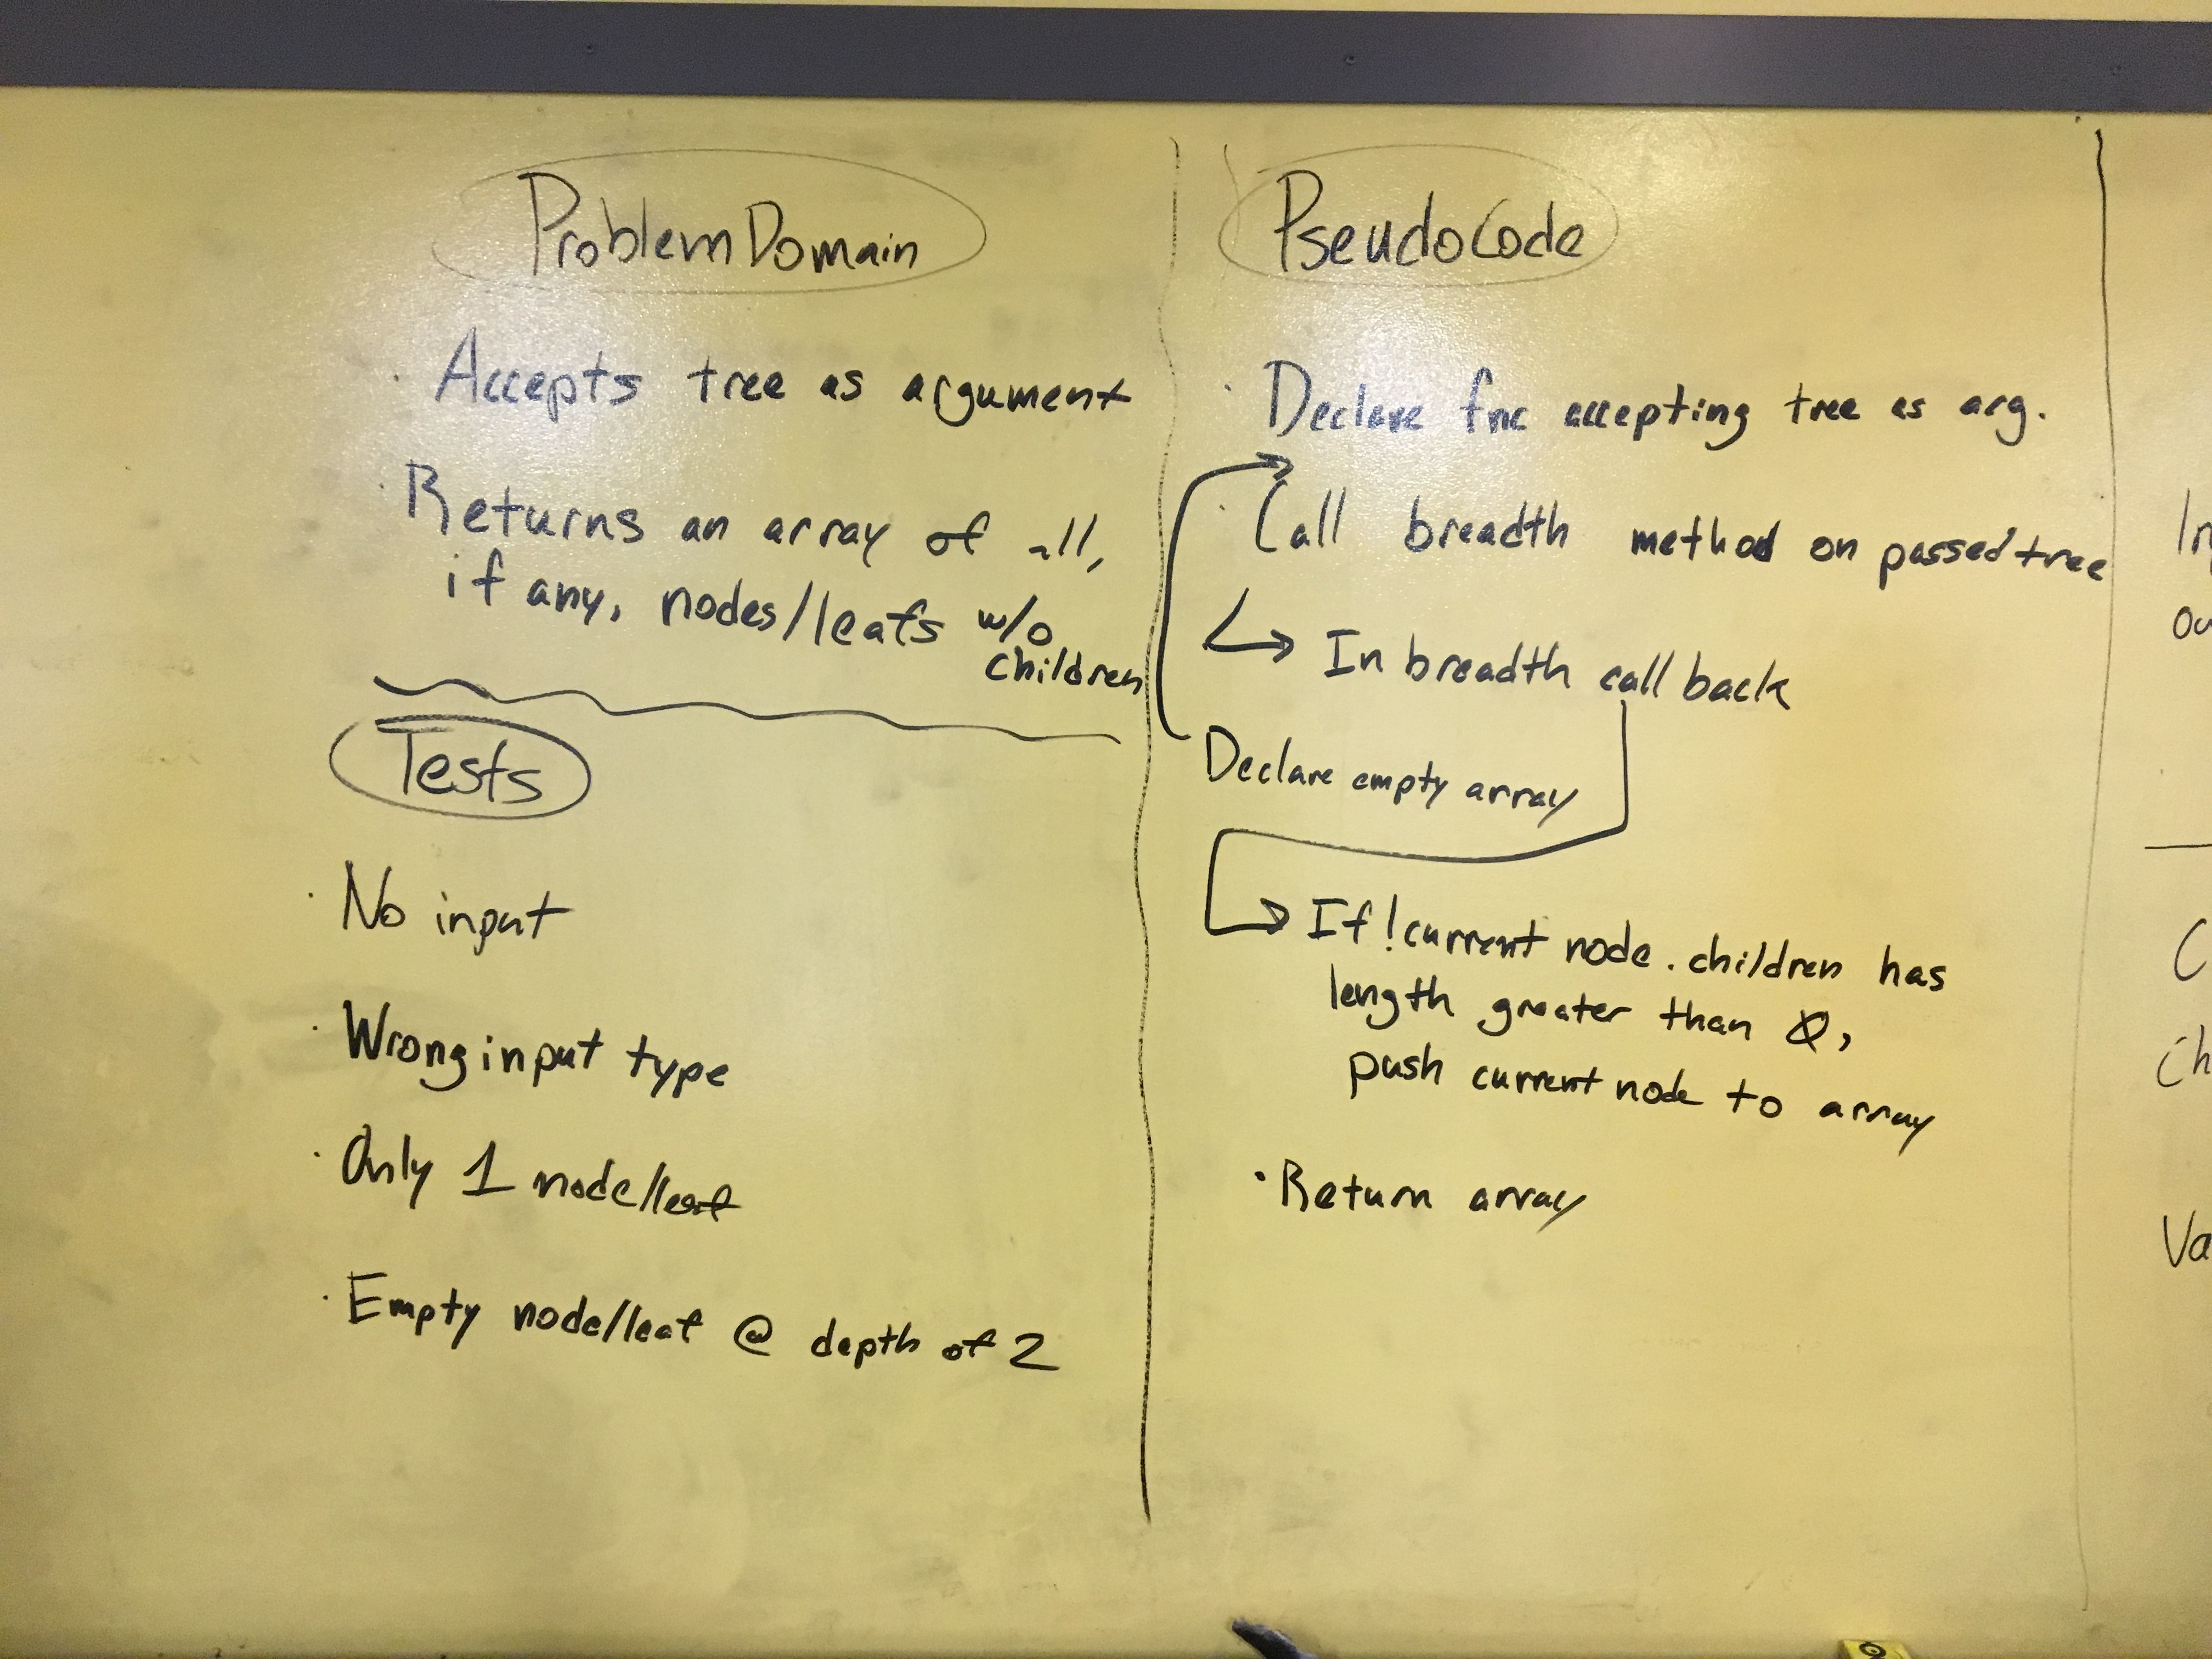 Problem Domain
· Accepts tree as argument
· Returns an array of all,
if any, nodes/leafs w/o
children
Tests
· No input
· Wrong input type
· Only 1 node/leaf
· Empty node/leaf @ depth of 2
PseudoCode
· Declare fnc accepting tree as arg.
· Call breadth method on passed tree
In breadth call back
Declare empty array
If !current node.children has
length greater than 0,
push current node to array
· Return array